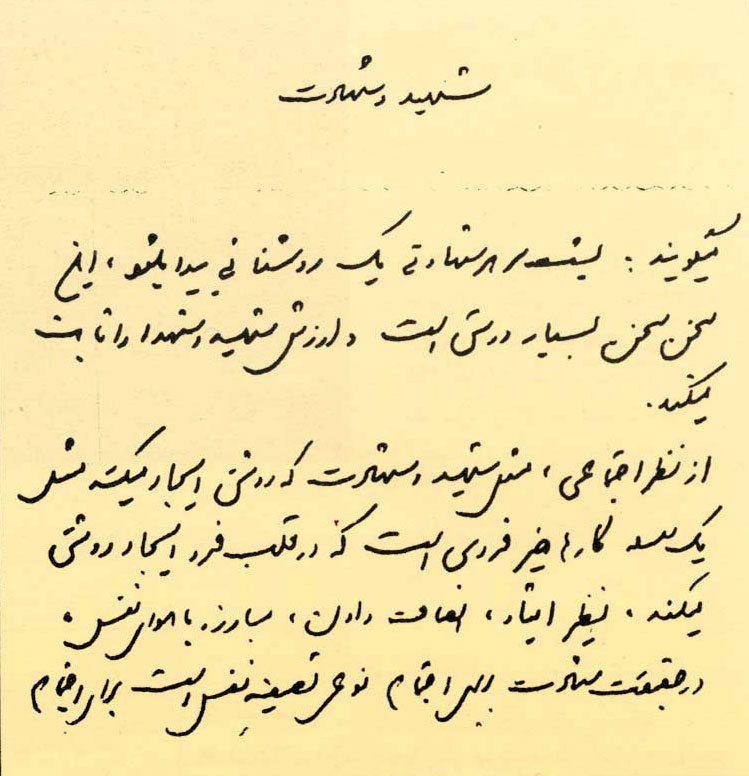 شهید و شهادت
میگویند: پشت سر هر شهادتی یک روشنائی پیدا میشود، این
سخن سخن بسیار درستی است و ارزش شهید و شهدا را ثابت
میکند.
از نظر اجتماعی، مثل شهید و شهادت که روشنی ایجاد میکند مثل
یک سلسله کارهای خیر فردی است که در قلب فرد ایجاد روشنی
میکند، نظیر ایثار، انصاف دادن، مبارزه با هوای نفس،
در حقیقت شهادت برای اجتماع نوعی تصفیه نفس است برای اجتماع